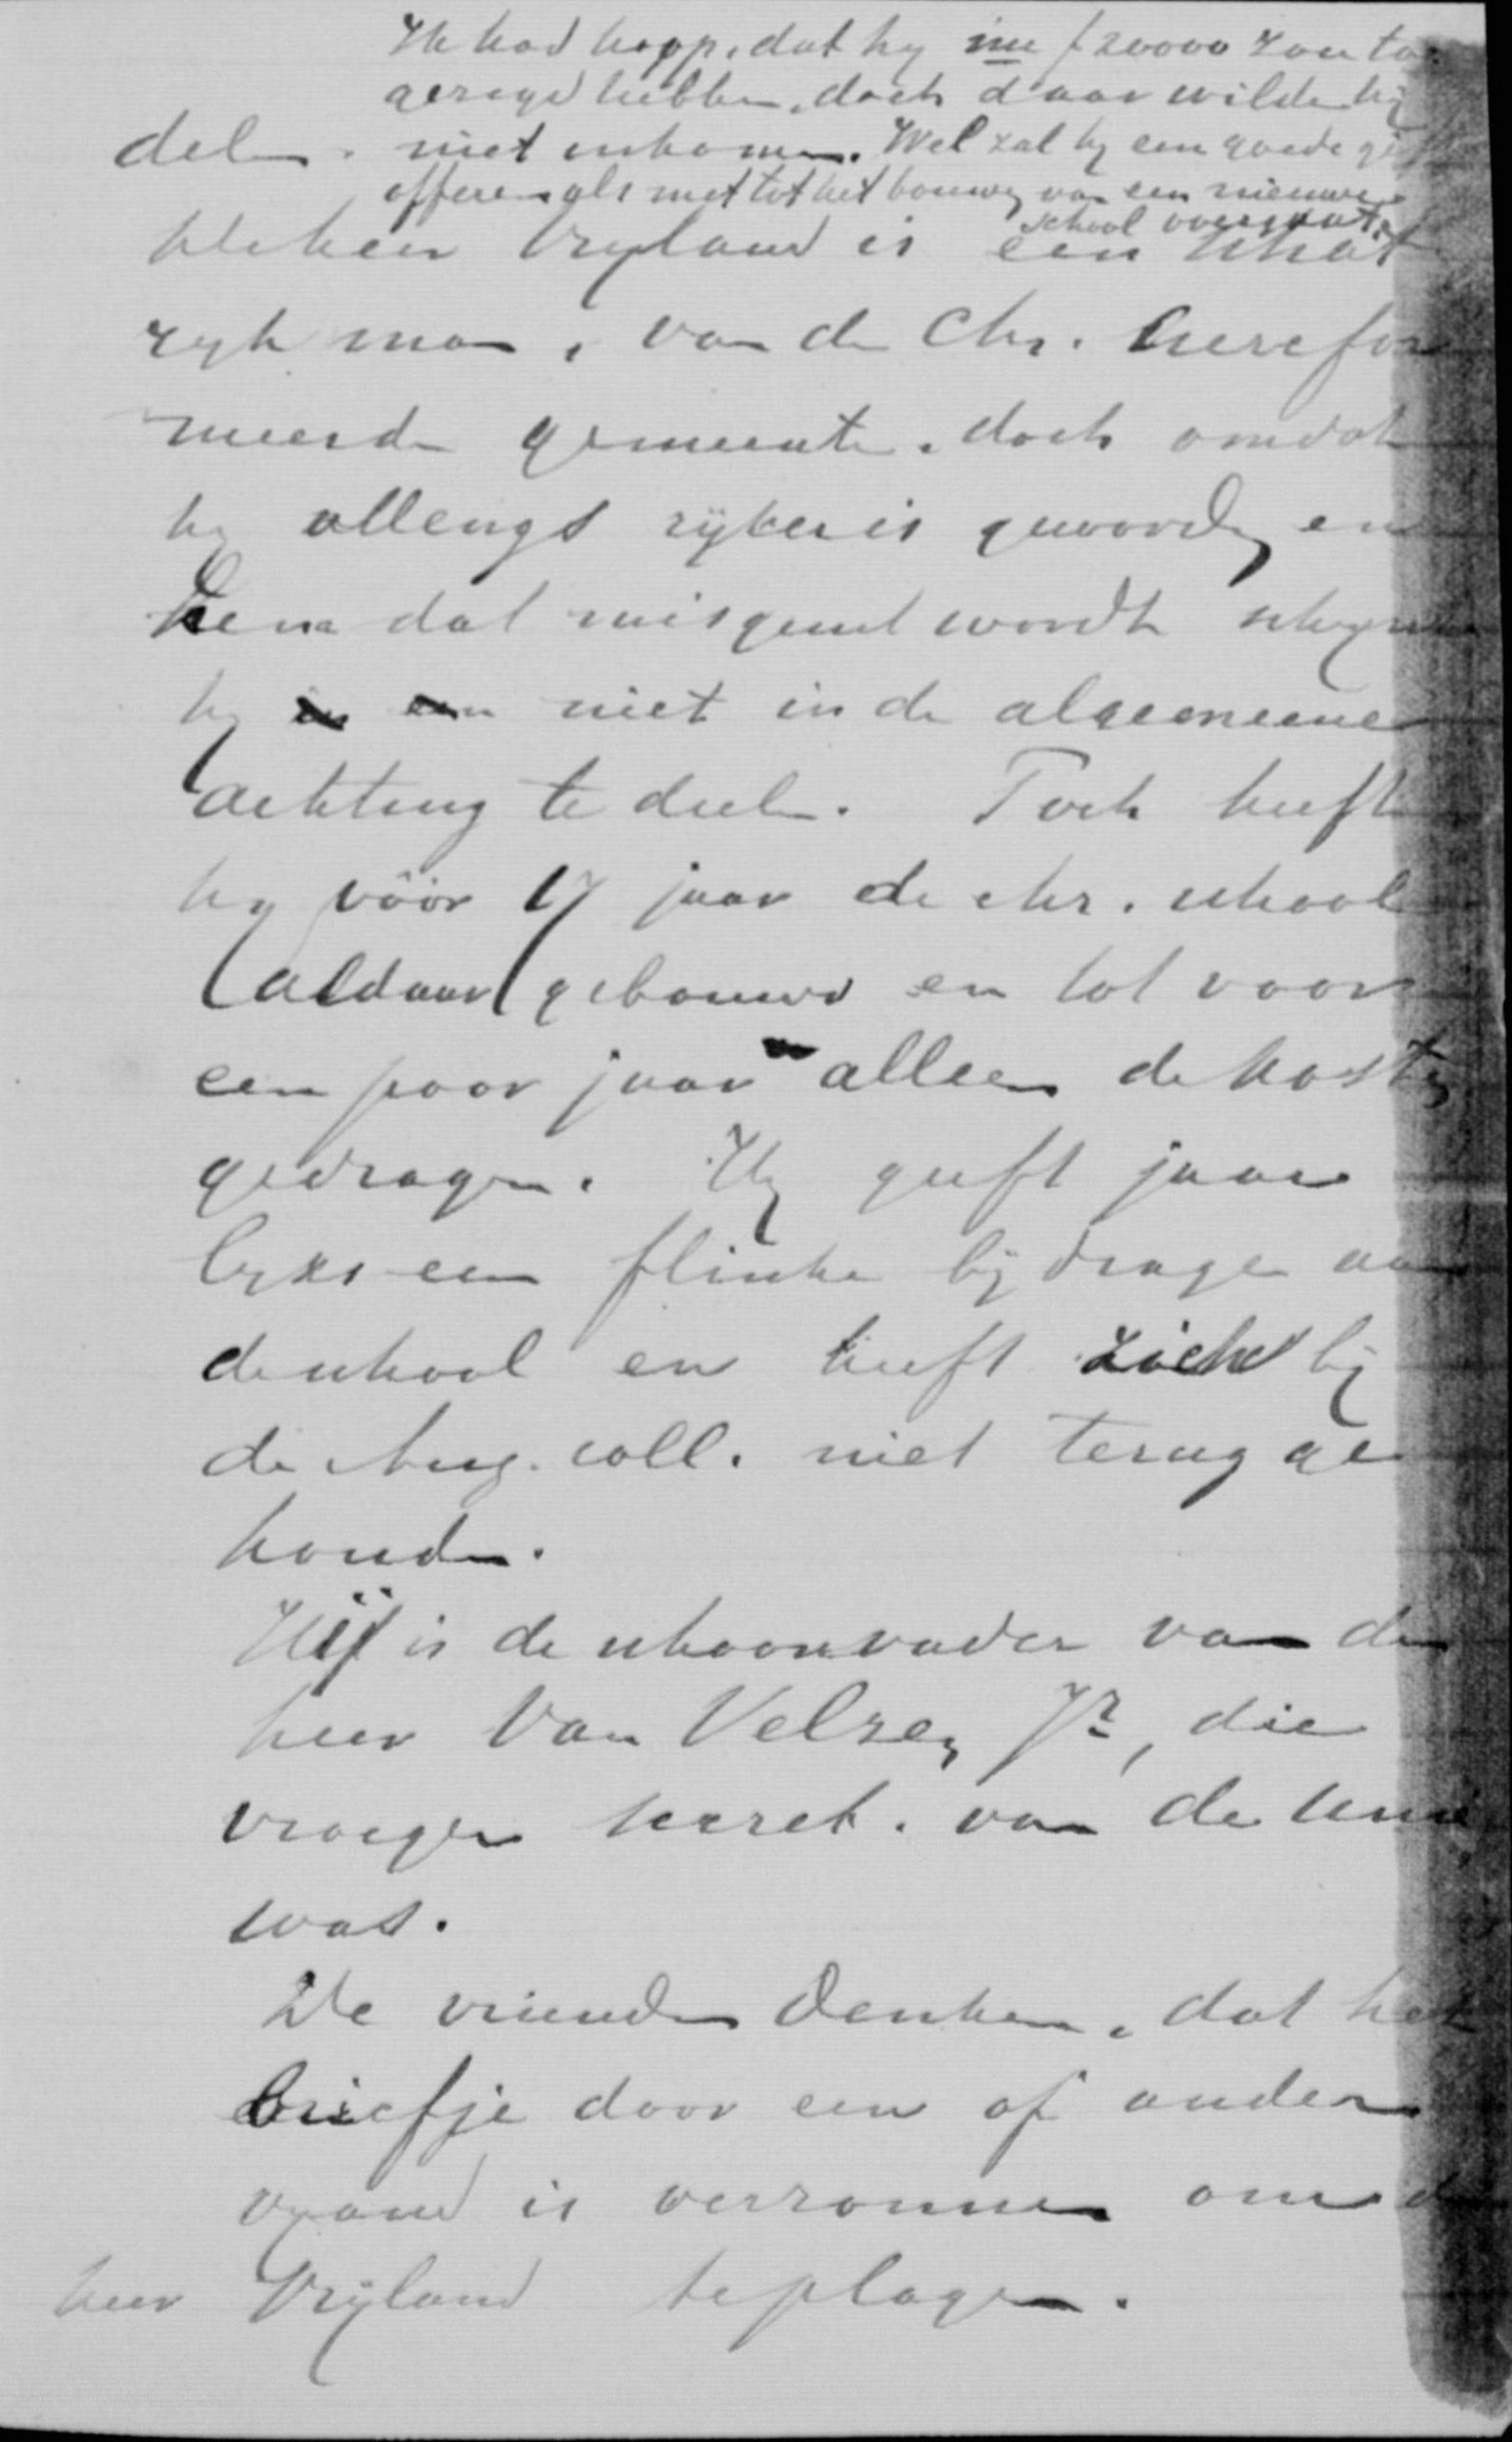 Ik had hoop, dat hy nu f 20000 zou toe
gezegd hebben, doch daar wilde hy
deln. niet inkomen. Wel zal hy een goede gift
offeren als met tot het bouwen van een nieuwe
school overgaat.
De heer Vryland is een schat
ryk man, van de Chr. Gerefor
meerde gemeente, doch omdat
hy allengs rijker is geworden en
hem dat misgund wordt schynt
hy niet in de algemeene
achting te deelen. Toch heeft
hy vóór 17 jaar de chr. school
aldaar gebouwd en tot voor
een paar jaar alleen de kosten
gedragen. Hy geeft jaar
lyks een flinke bijdrage aan
de school en heeft zich bij
de Aug. coll. niet terug ge
houden.
Hij is de schoonvader van den
heer Van Velzen Jr, die
vroeger secret. van de Unie
was.
De vrienden denken, dat het
briefje door een of ander
vyand is verzonnen om d
heer Vrijland te plagen.